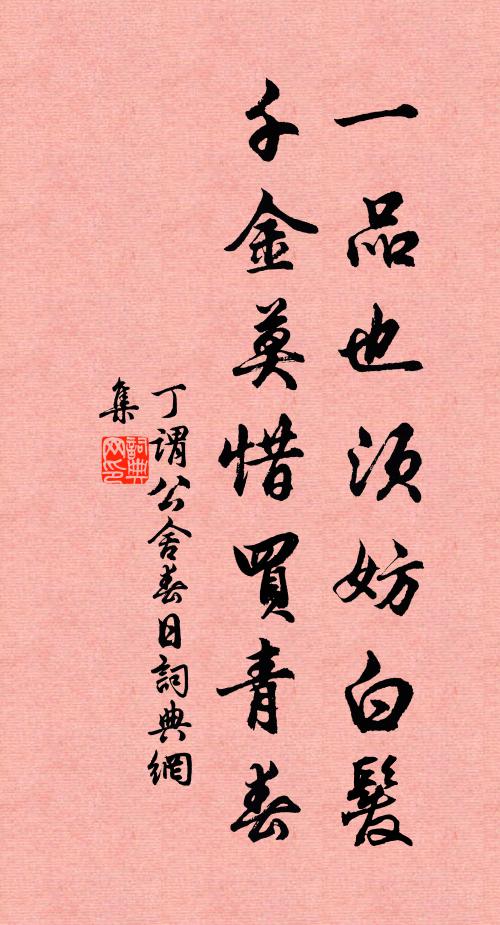 一品也須妨白髮
千金莫惜買青春
丁謂公舍春日詞典網
集
詞典
网印